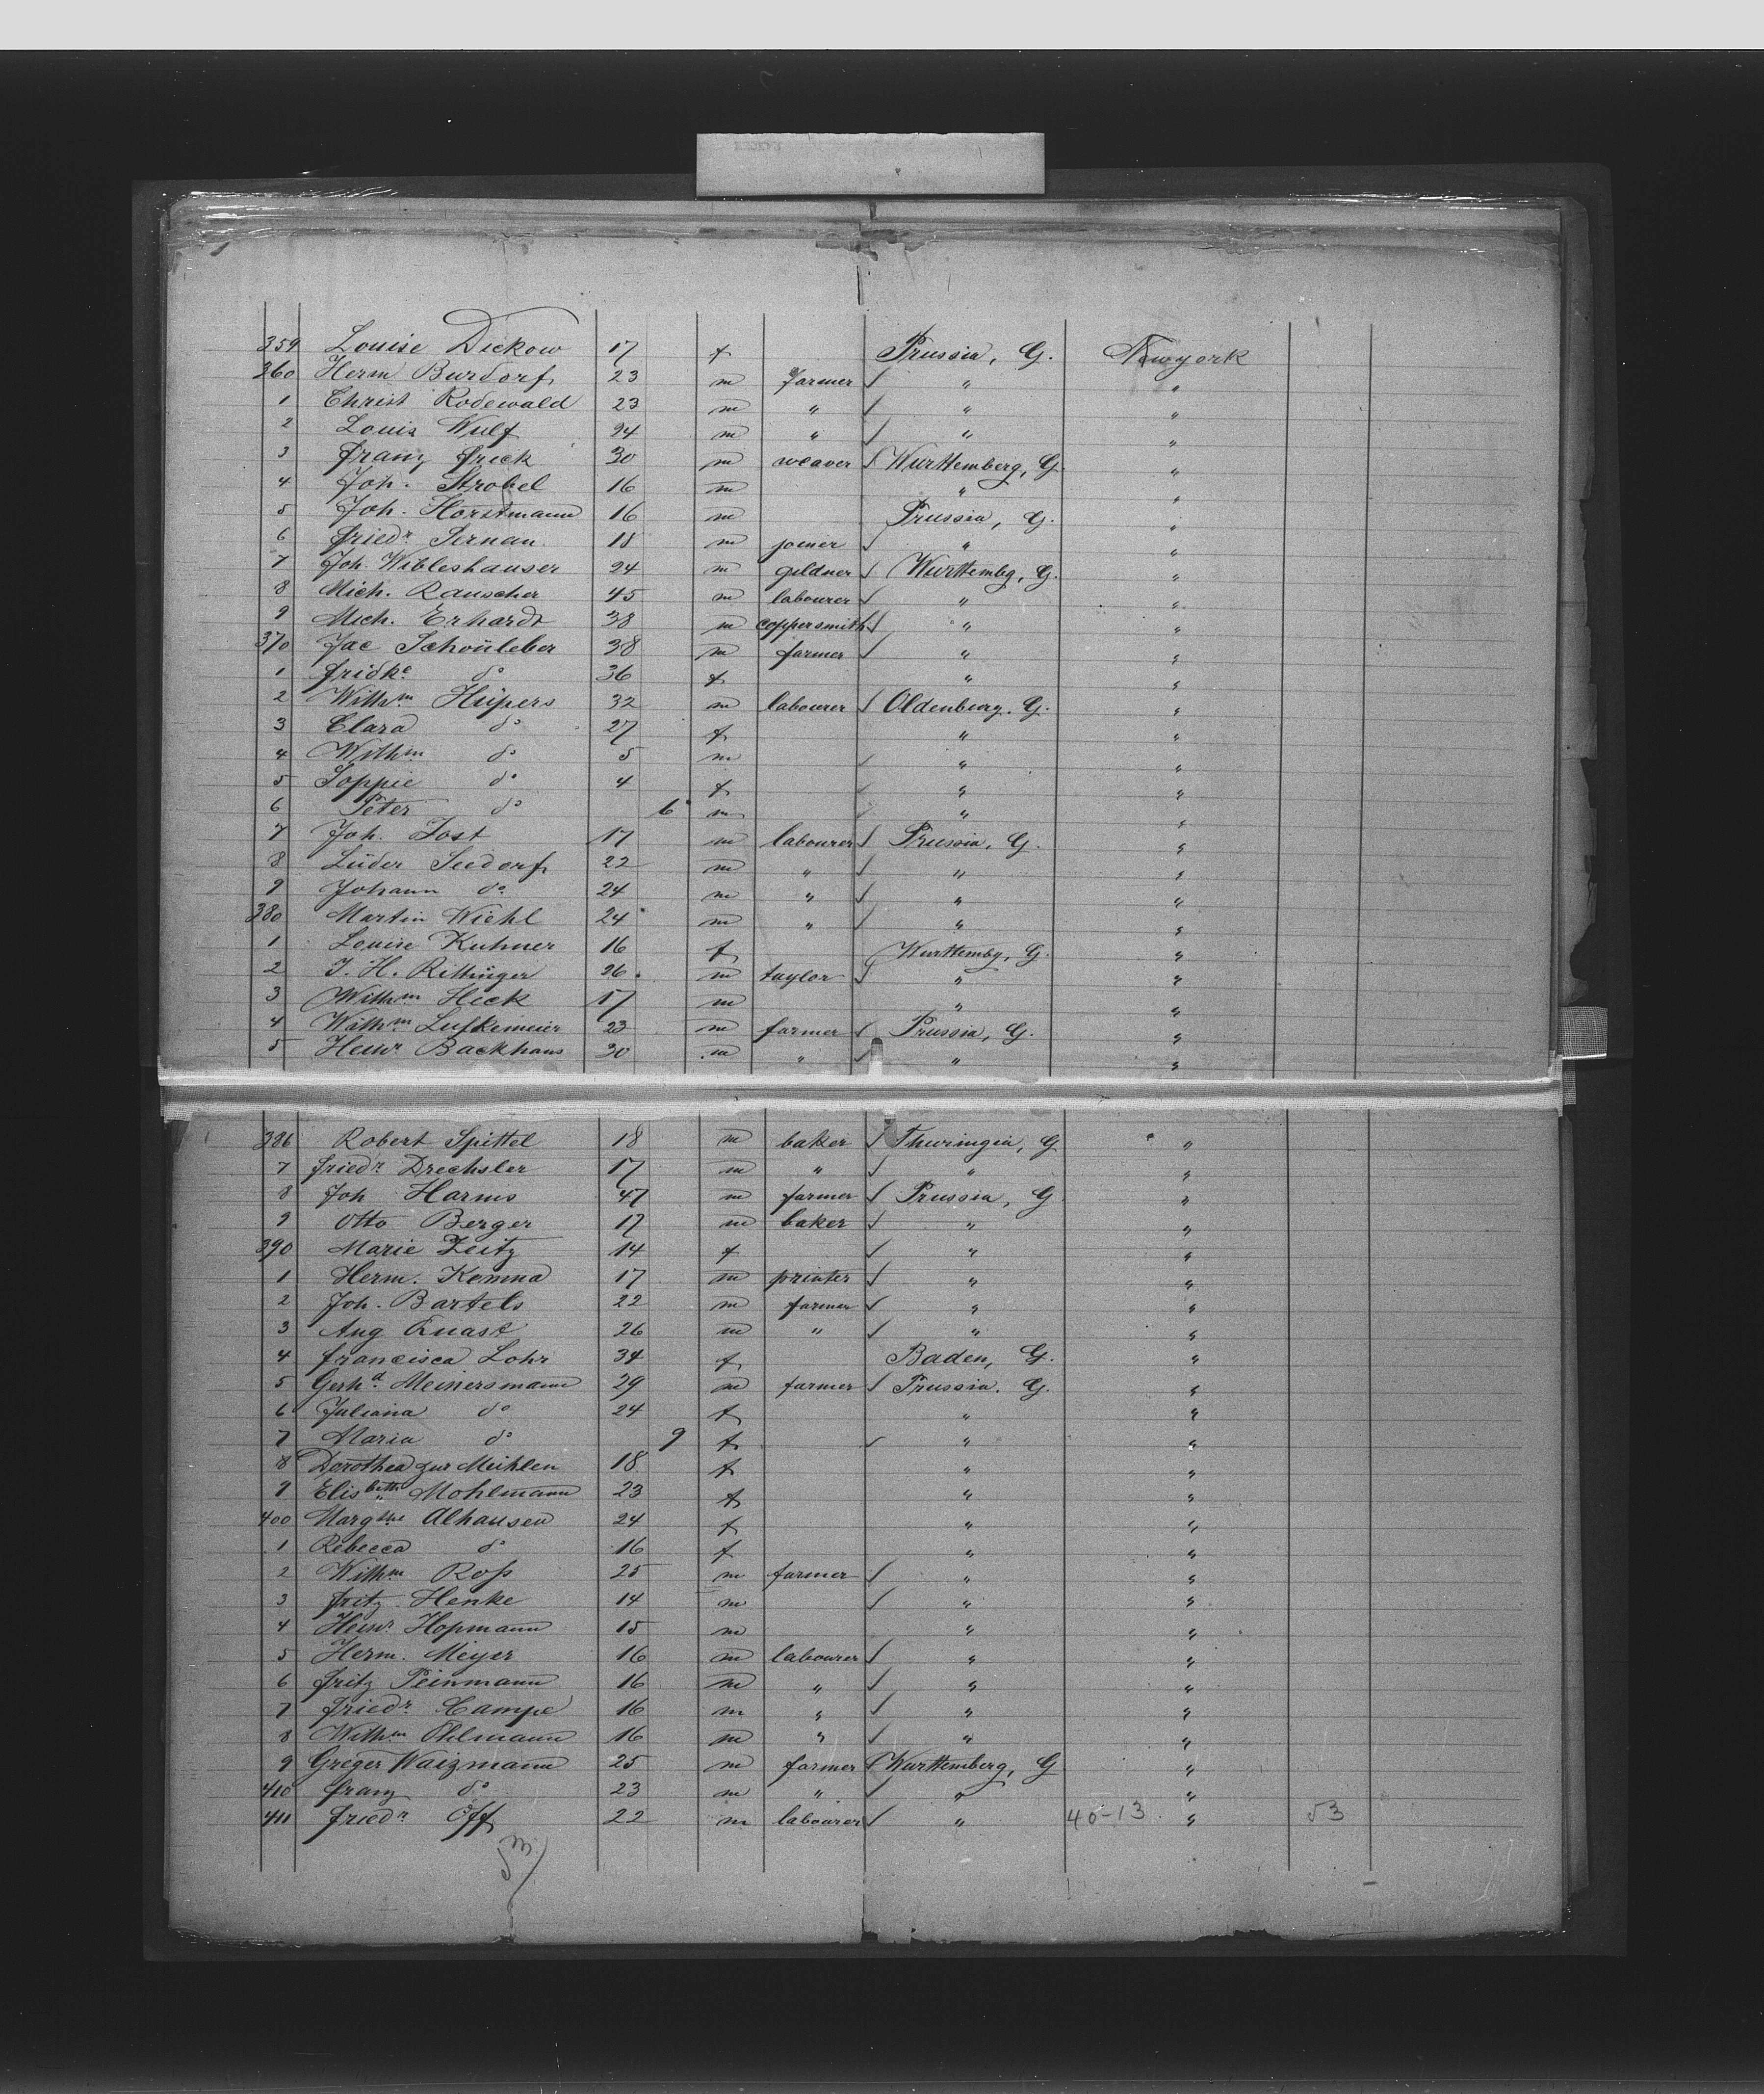 359 Louise Dickow 17 f Prussia, G. Newyork
360 Herm Burdorf 23 m farmer ✓ " "
1 Christ Rodewald 23 m " ✓ " "
2 Louis Wulf 24 m " ✓ " "
3 Franz Frick 30 m weaver ✓ Wurttemberg, G. "
4 Joh. Strobel 16 m " "
5 Joh. Horstmann 16 m Prussia, G. "
6 Friedr Sernau 18 m joiner ✓ " "
7 Joh. Wibleshauser 24 m gildner ✓ Wurttembg, G. "
8 Mich. Rauscher 45 m labourer ✓ " "
9 Mich. Erhardt 38 m coppersmith ✓ " "
370 Jac Schönleber 38 m farmer ✓ " "
1 Fridke do 36 f " "
2 Wilhm Hüpers 32 m labourer ✓ Oldenburg. G. "
3 Clara do 27 f " "
4 Wilhm do 5 m ✓ " "
5 Soppie do 4 f ✓ " "
6 Peter do 6 m ✓ " "
7 Joh. Jost 17 m labourer ✓ Prussia, G. "
8 Lüder Seedorf 22 m " ✓ " "
9 Johann do 24 m " ✓ " "
380 Martin Wiehl 24 m " ✓ " "
1 Louise Kuhner 16 f Wurttembg, G. "
2 J. H. Rittinger 26 m taylor ✓ " "
3 Wilhm Heck 17 m " "
4 Wilhm Lufkemeier 23 m farmer ✓ Prussia, G. "
5 Heinr Backhaus 30 m " ✓ " "
386 Robert Spittel 18 m baker ✓ Thuringia, G "
7 Friedr Drechsler 17 m " ✓ " "
8 Joh Harms 47 m farmer ✓ Prussia, G "
9 Otto Berger 17 m baker ✓ " "
390 Marie Zeitz 14 f ✓ " "
1 Herm. Kemna 17 m printer ✓ " "
2 Joh. Bartels 22 m farmer ✓ " "
3 Aug Quast 26 m " ✓ " "
4 Francisca Lohr 34 f Baden, G. "
5 Gerhd Meinersmann 29 m farmer ✓ Prussia. G. "
6 Juliana do 24 f " "
7 Maria do 9 f ✓ " "
8 Dorothea zur Mühlen 18 f " "
9 Elisbeth Mohlmann 23 f " "
400 Margthe Alhausen 24 f " "
1 Rebecca do 16 f " "
2 Wilhm Ross 25 m farmer ✓ " "
3 Fritz Henke 14 m ✓ " "
4 Heinr Hopmann 15 m " "
5 Herm. Meyer 16 m labourer ✓ " "
6 Fritz Peinmann 16 m " ✓ " "
7 Friedr Campe 16 m " ✓ " "
8 Wilhm Ohlmann 16 m " ✓ " "
9 Greger Waizmann 25 m farmer ✓ Wurttemberg, G "
410 Franz do 23 m " ✓ " "
411 Friedr Off 22 m labourer ✓ " 40-13 " 53